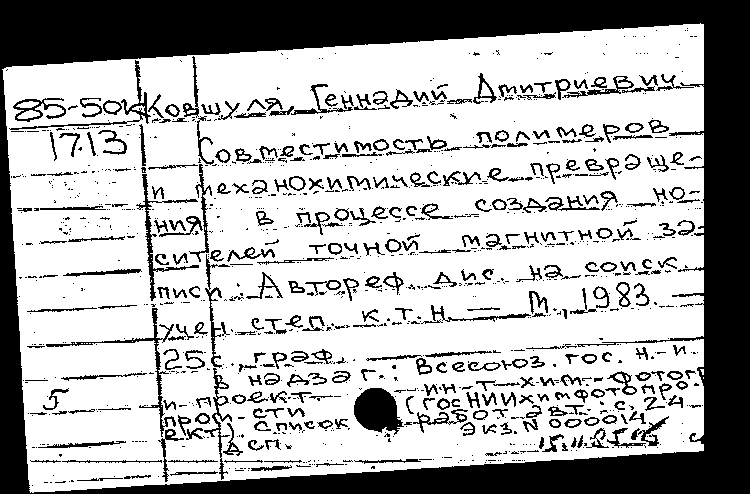 85-50к Ковшуля, Геннадий Дмитриевич.
1713 Совместимость полимеров
и механохимические превраще-
ния в процессе создания но-
сителей точной магнитной за-
писи : Автореф. дис. на соиск.
учен. степ. к.т.н. — М., 1983. —
25с., граф.
В надзаг.: Всесоюз. гос. н.-и.
и проект. ин-т хим.-фотогр
пром-сти (ГосНИИхимфотопро-
ект). Список работ авт.: с. 24
5
Экз. N 000014
дсп.